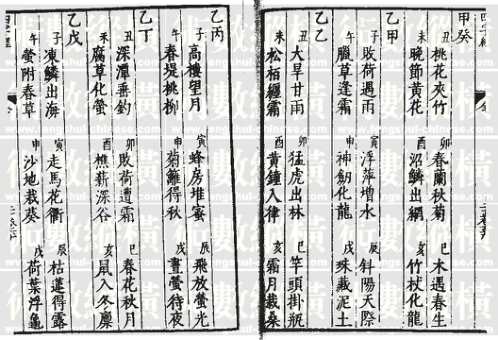 甲癸
丑 桃花夾竹 卯 春蘭秋菊 巳 木遇春生
未 晚節黃花 酉 沼鱗出網 亥 竹杖化龍
乙甲
子 敗荷遇雨 寅 浮萍增水 辰 斜陽天際
午 臘草逢霜 申 神劍化龍 戌 珠藏泥土
乙乙
丑 大旱甘雨 卯 猛虎出林 巳 竿頭掛瓶
未 松栢纒霜 酉 黃鐘入律 亥 霜月栽桑
乙丙
子 高樓望月 寅 蜂房堆蜜 辰 飛放螢光
午 春堤桃柳 申 菊籬得秋 戌 晝螢待夜
乙丁
丑 深潭垂釣 卯 敗荷遭霜 巳 春花秋月
未 腐草化螢 酉 樵薪深谷 亥 鼠入冬廩
乙戊
子 凍鱗出海 寅 走馬花衢 辰 枯蓮得露
午 螢附春草 申 沙地栽葵 戌 荷葉浮龜